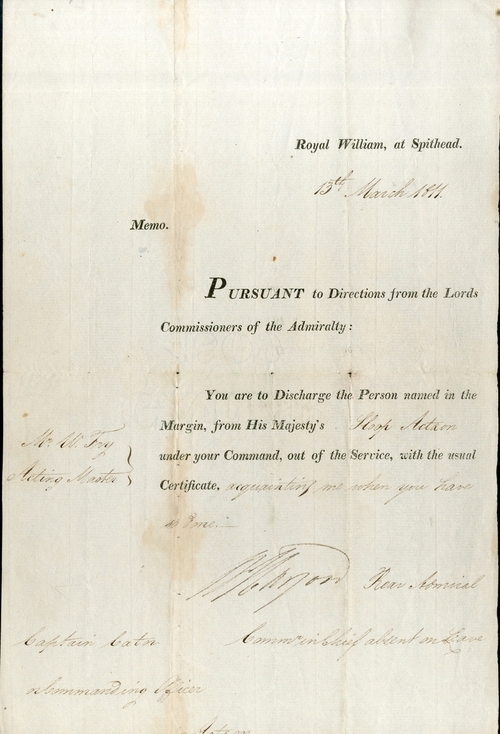 Royal William, at Spithead.
13th March 1811.
Memo.
PURSUANT to Directions from the Lords
Commissioners of the Admiralty:
You are to Discharge the Person named in the
Margin, from His Majesty's Slop Actæon
Mr. W. Fry
Acting Master
under your Command, out of the Service, with the usual
Certificate, acquainting me when you have
so done.
Rear Admiral
Captain Cator
Commr. in Chief absent on Leave
or Commanding Officer
Actæon